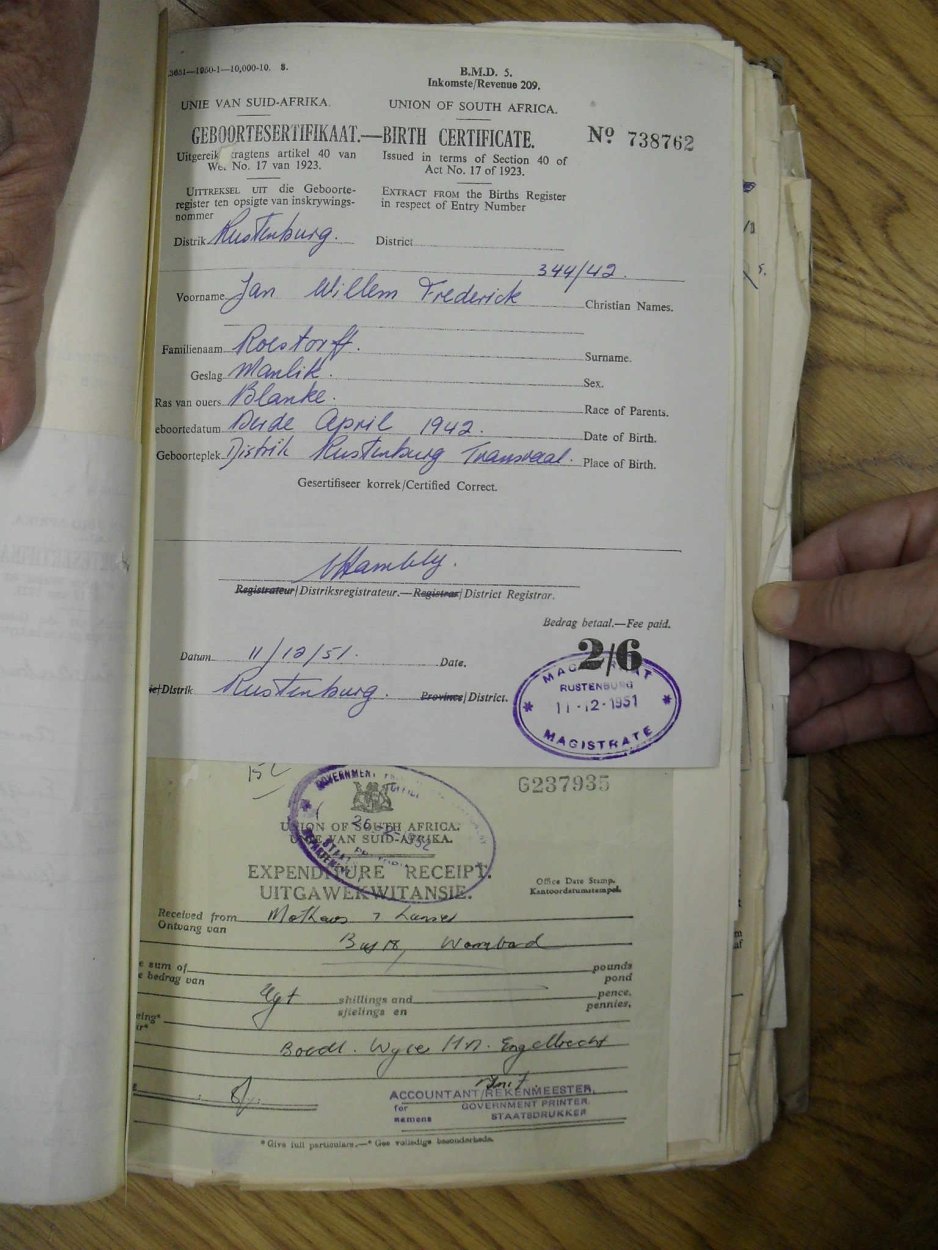 3651—1950-1—10,000-10. S.
B.M.D. 5.
Inkomste/Revenue 209.
UNIE VAN SUID-AFRIKA. UNION OF SOUTH AFRICA.
GEBOORTESERTIFIKAAT.—BIRTH CERTIFICATE. No 738762
Uitgereik kragtens artikel 40 van Issued in terms of Section 40 of
Wet No. 17 van 1923. Act No. 17 of 1923.
UITTREKSEL UIT die Geboorte- EXTRACT FROM the Births Register
register ten opsigte van inskrywings- in respect of Entry Number
nommer
Distrik Rustenburg. District
344/42.
Voorname Jan Willem Frederick Christian Names.
Familienaam Roestorff. Surname.
Geslag Manlik. Sex.
Ras van ouers Blanke. Race of Parents.
eboortedatum Derde April 1942. Date of Birth.
Geboorteplek Distrik Rustenburg Transvaal. Place of Birth.
Gesertifiseer korrek/Certified Correct.
Hambly.
Registrateur/Distriksregistrateur.—Registrar/District Registrar.
Bedrag betaal.—Fee paid.
2/6
Datum 11/12/51. Date.
ie/Distrik Rustenburg. Province/District.
MAGISTRAAT
RUSTENBURG
11-12-1951
MAGISTRATE
G237935
GOVERNMENT
UNION OF SOUTH AFRICA.
UNIE VAN SUID-AFRIKA.
EXPENDITURE RECEIPT.
UITGAWEKWITANSIE.
Office Date Stamp.
Kantoordatumstempel.
Received from
Ontvang van
Warmbad
e sum of pounds
e bedrag van pond
Agt shillings and pence.
sjielings en pennies.
eing*
ir*
Boedl. Wyle Engelbrecht
8/-
ACCOUNTANT/REKENMEESTER.
for GOVERNMENT PRINTER
namens STAATSDRUKKER
*Give full particulars.—*Gee volledige besonderhede.